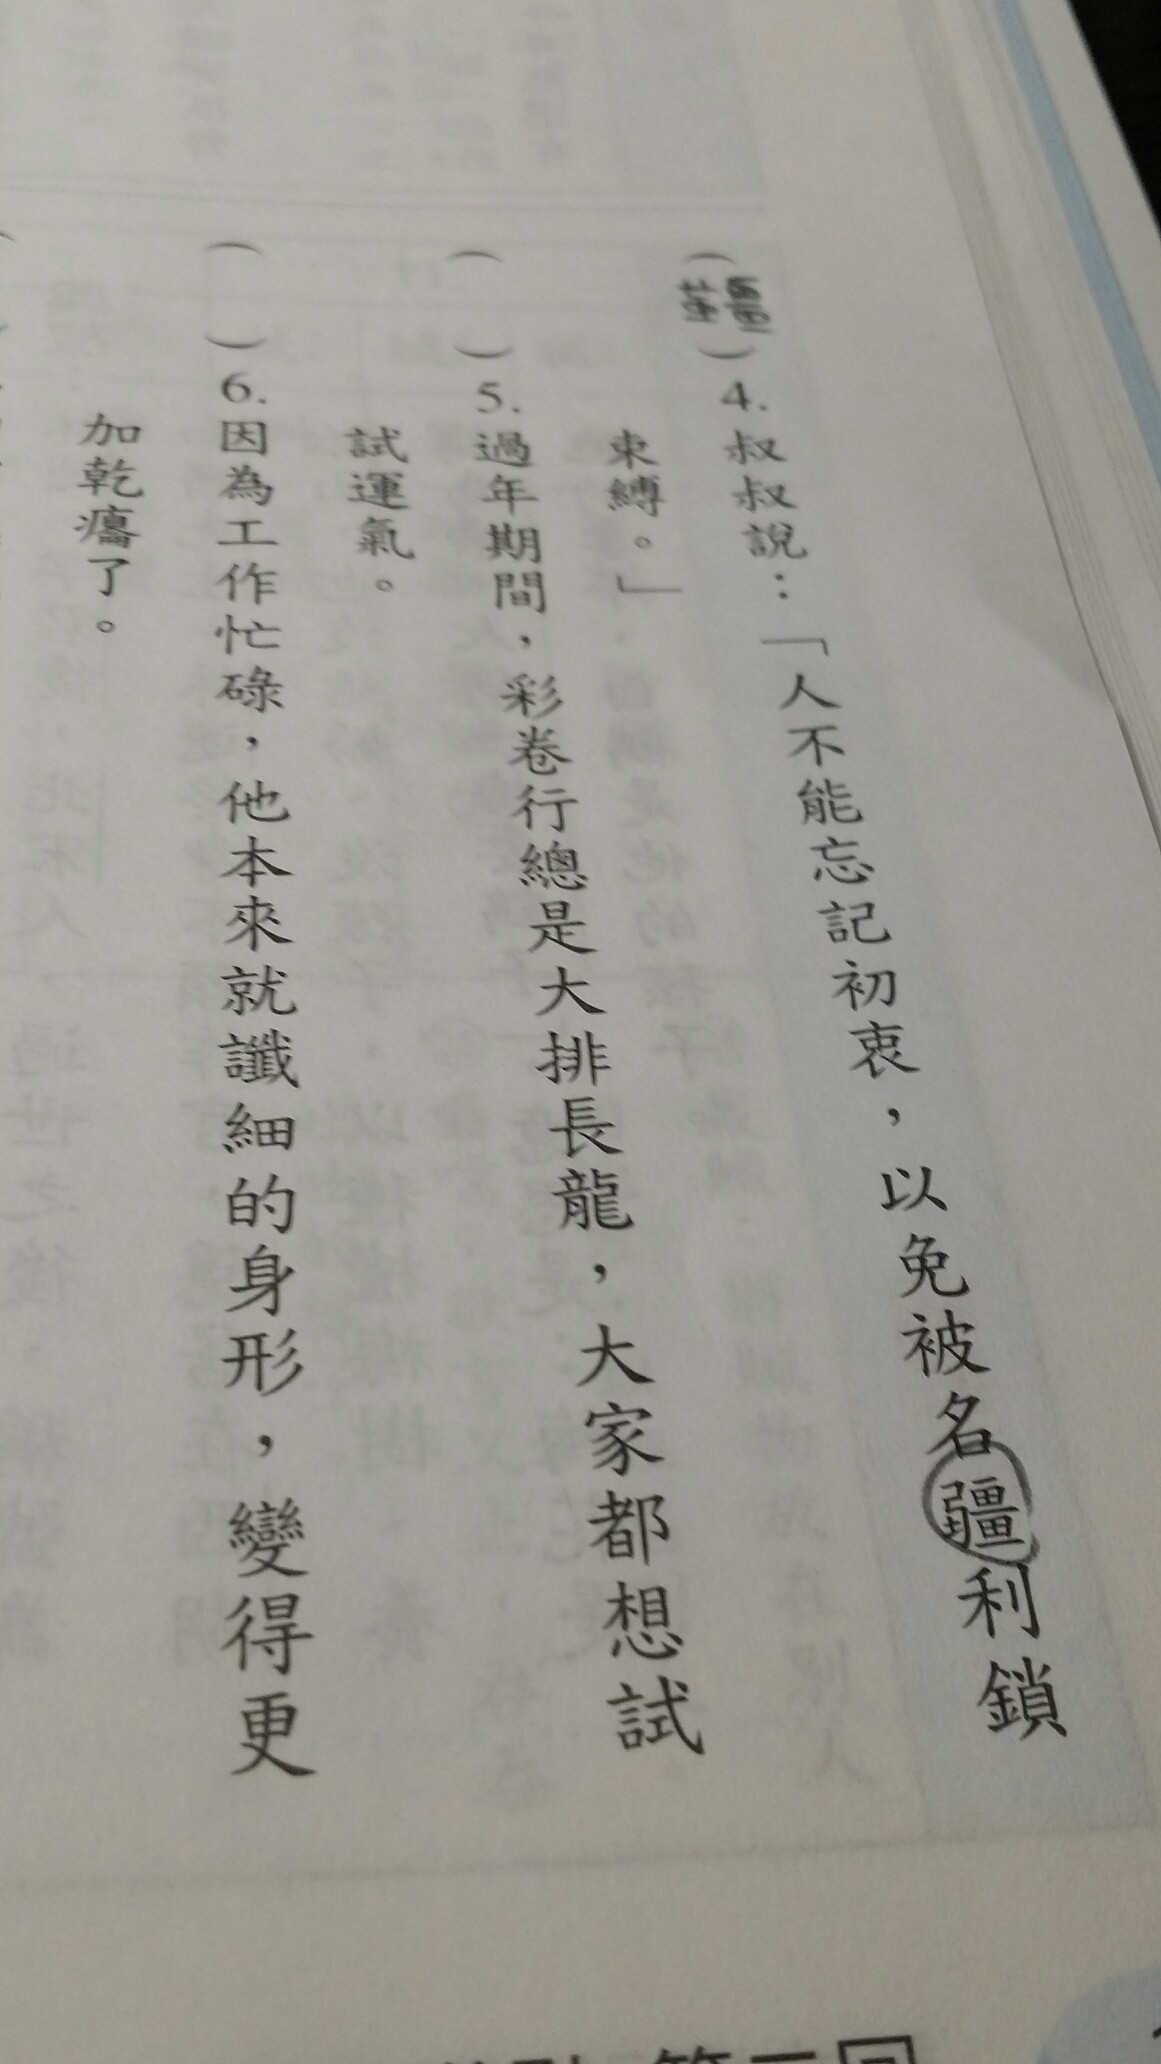 (韁)4.叔叔說：「人不能忘記初衷，以免被名疆利鎖
束縛。」
( )5.過年期間，彩卷行總是大排長龍，大家都想試
試運氣。
( )6.因為工作忙碌，他本來就讖細的身形，變得更
加乾癟了。